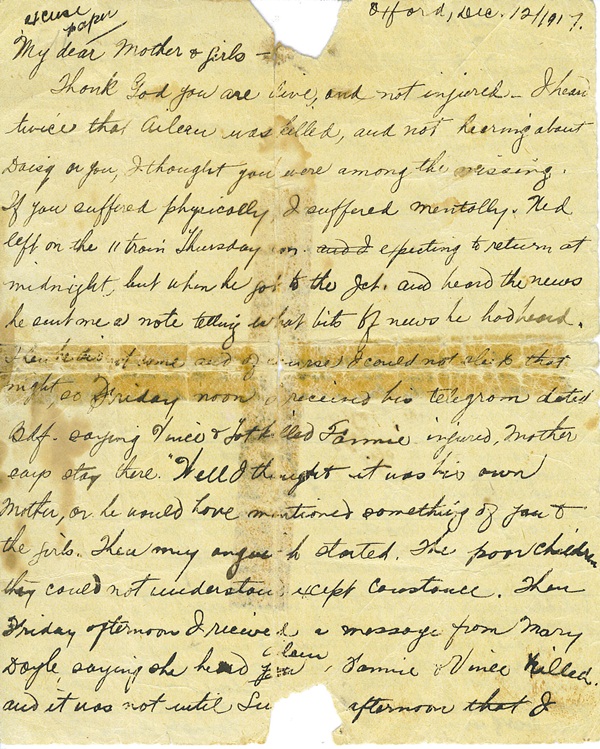 excuse
paper
Oxford, Dec. 12/1917.
My dear Mother & girls –
Thank God you are live, and not injured – I hear
twice that Aileen was killed, and not hearing about
Daisy or you, I thought you were among the missing.
If you suffered physically I suffered mentally. Ned
left on the 11 train Thursday and I expecting to return at
midnight, but when he got to the Jct. and heard the news
he sent me a note telling what bits of news he had heard.
and of course I could not that
night, so Friday noon I received his telegram dated
Bdf. saying "Vince & Tot killed Fannie injured, Mother
says stay there." Well I thought it was his own
Mother, or he would have mentioned something of you &
the girls. Then my anguish started. The poor children
they could not understand, except Constance. Then
Friday afternoon I received a message from Mary
Doyle, saying she heard you, Fannie & Vince killed.
and it was not until afternoon that I